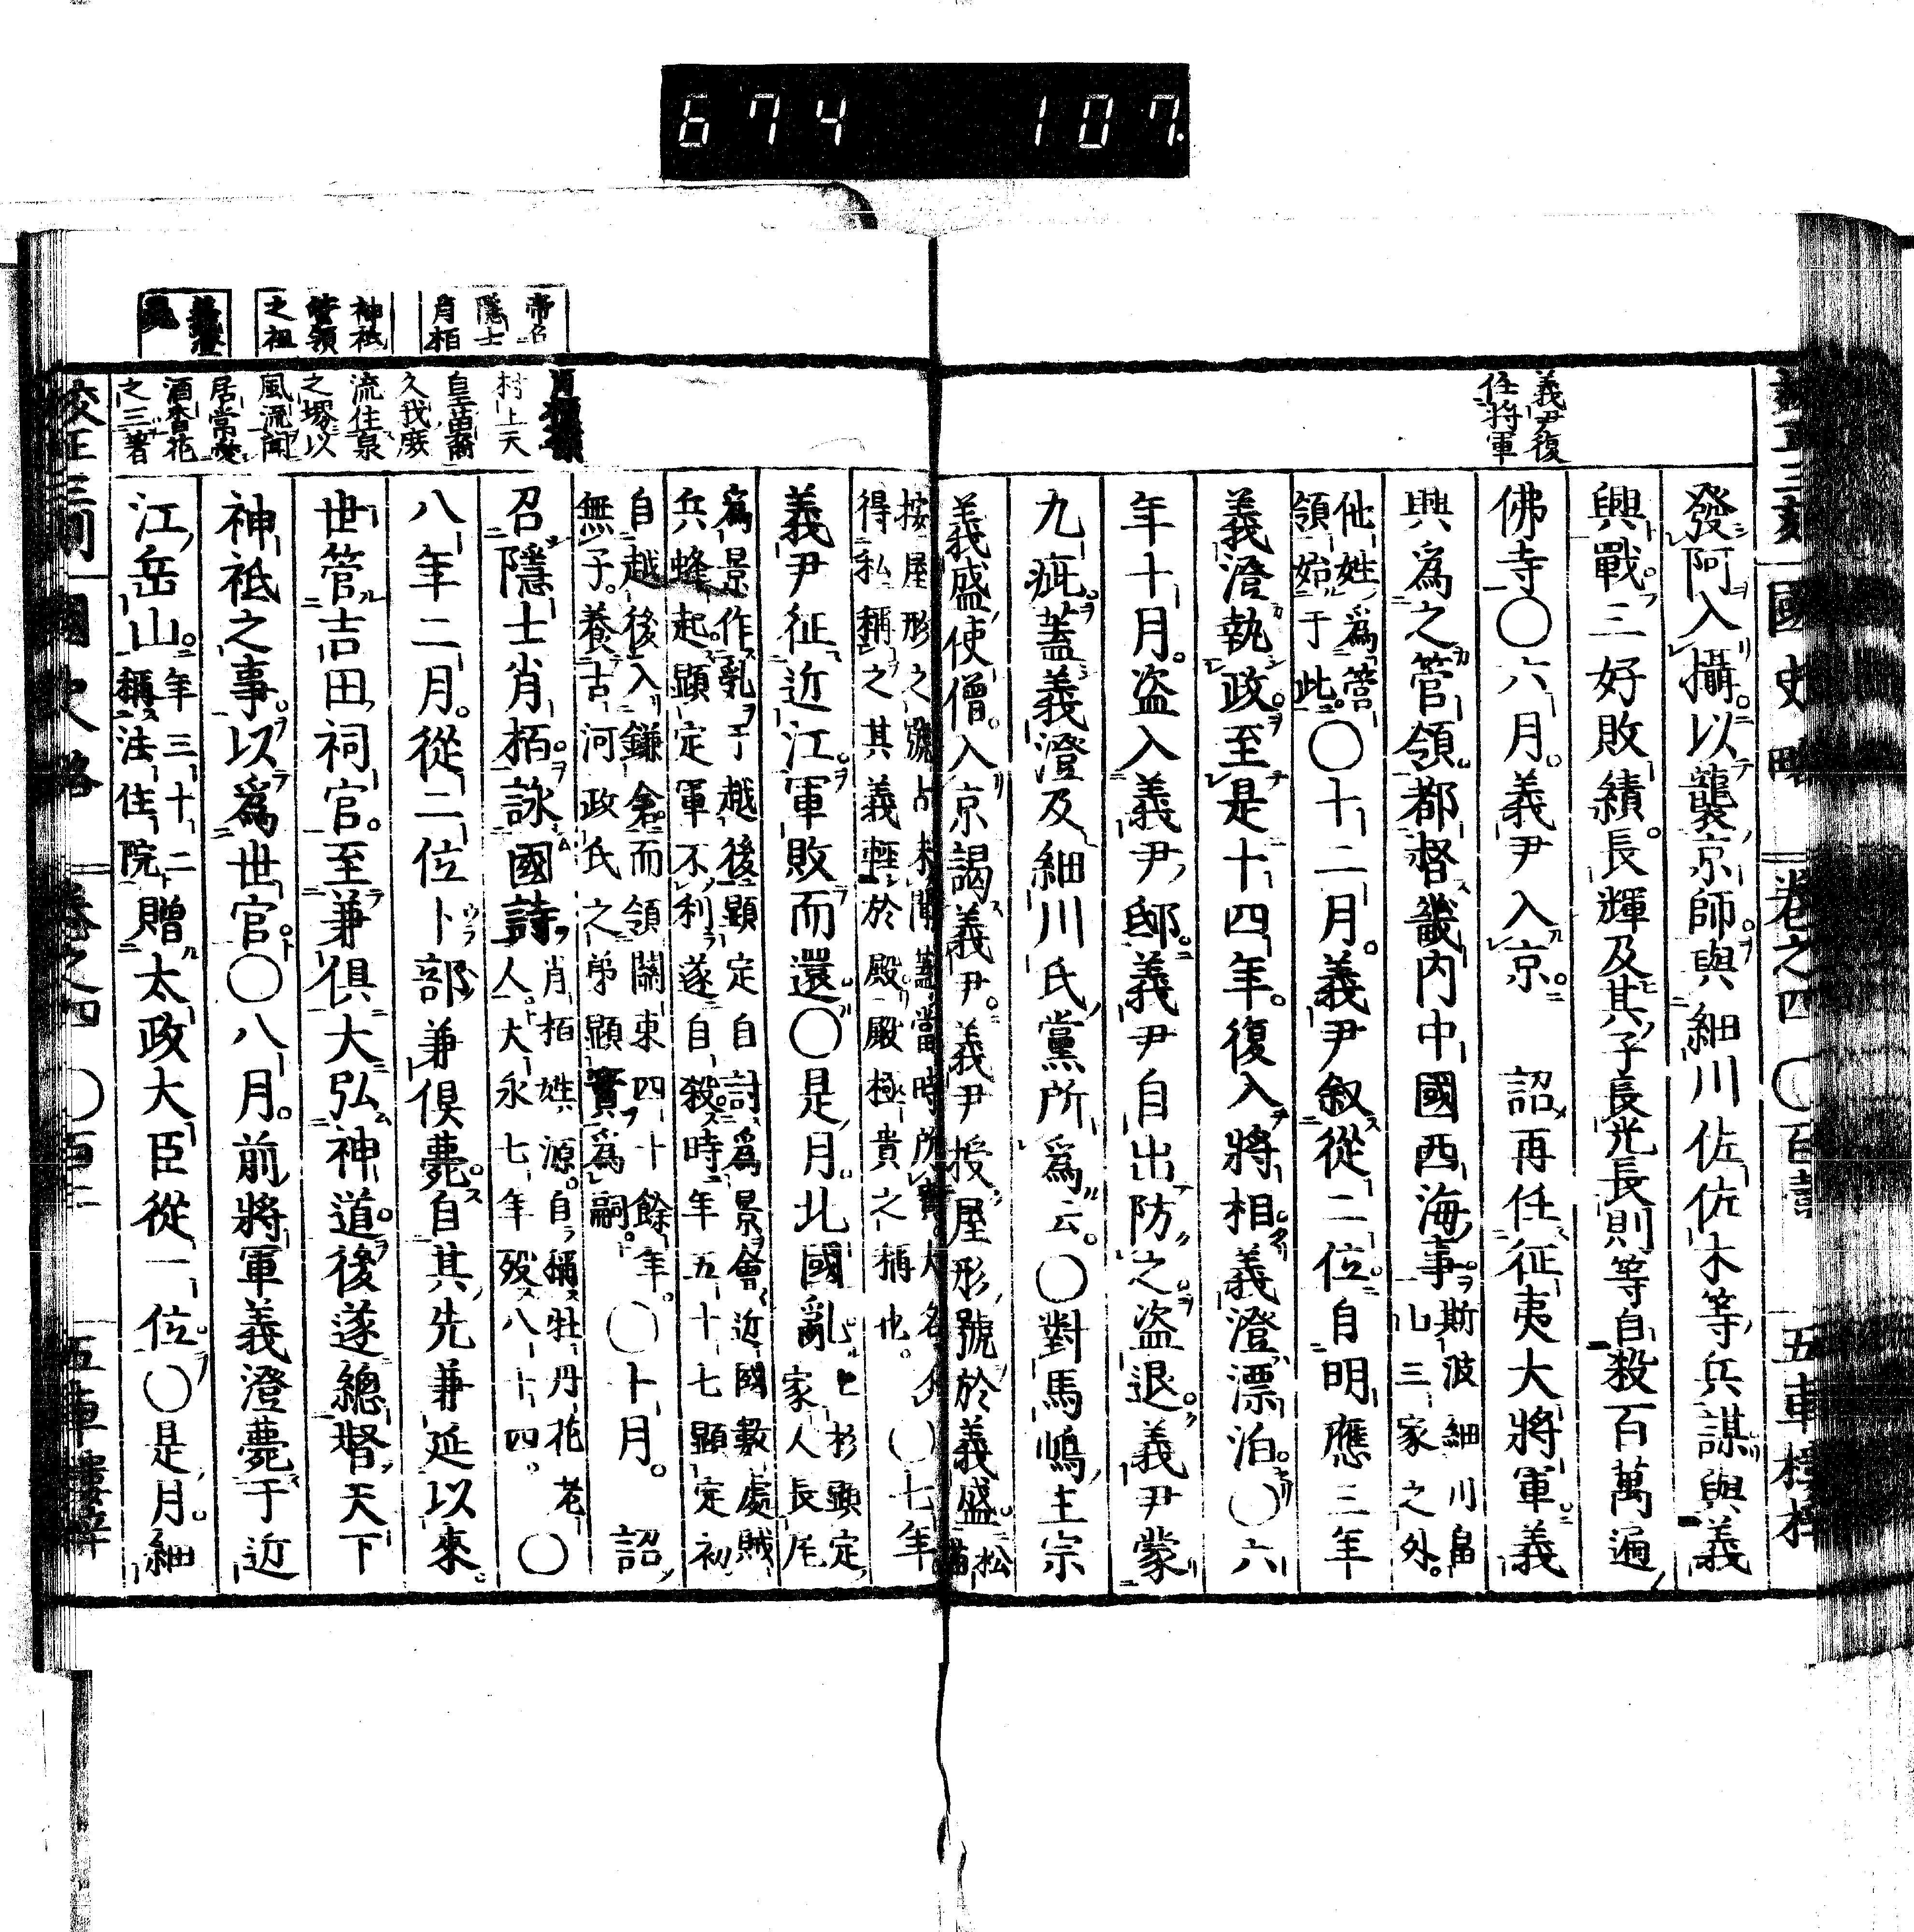 674 107.
校正三刻 國史略 卷之四 〇百壹 五車樓梓
義尹復
任將軍
發阿入攝以襲京師與細川佐佐木等兵謀與義
興戰三好敗績長輝及其子長光長則等自殺百萬遍
佛寺〇六月義尹入京 詔再任征夷大將軍義
興爲之管領都督畿内中國西海事斯波細川畠
山三家之外
他姓爲管
領始于此〇十二月義尹叙從二位自明應三年
義澄執政至是十四年復入將相義澄漂泊〇六
年十月盜入義尹邸義尹自出防之盜退義尹蒙
九疵蓋義澄及細川氏黨所爲云〇對馬嶋主宗
義盛使僧入京謁義尹義尹授屋形號於義盛松
按屋形之號
得私稱之其義輕於殿殿極貴之稱也〇七年
義尹征近江軍敗而還〇是月北國亂上杉顯定
家人長尾
爲景作亂于越後顯定自討爲景會近國數處賊
兵蜂起顯定軍不利遂自殺時年五十七顯定初
自越後入鎌倉而領關東四十餘年
無子養古河政氏之弟顯實爲嗣〇十月 詔
召隱士肖柏詠國詩肖柏姓源自稱牡丹花老
人大永七年歿八十四〇
八年二月從二位卜部兼俱薨自其先兼延以來
世管吉田祠官至兼俱大弘神道後遂總督天下
神祇之事以爲世官〇八月前將軍義澄薨于近
江岳山年三十二
稱法住院贈太政大臣從一位〇是月細
帝召
隱士
肖柏
神祇
管領
之祖
義澄
薨
村上天
皇苗裔
久我庶
流住泉
之堺以
風流聞
居常愛
酒香花
之三著
校正三刻 國史略 卷之四 〇百二 五車樓梓